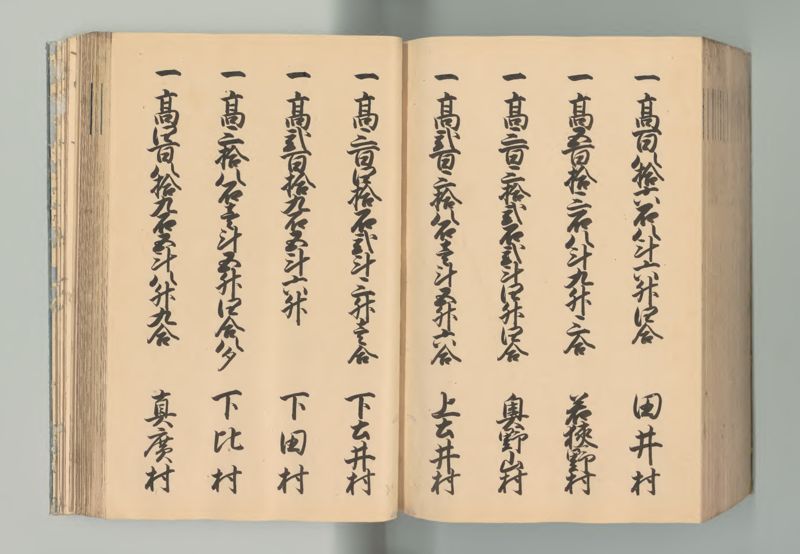 一 髙百八拾六石八斗六升四合 田井村
一 髙五百拾三石八斗九升三合 若狭野村
一 髙三百三拾弐石弐斗四升四合 奥野山村
一 髙弐百三拾八石壱斗五升六合 上土井村
一 髙三百四拾石弐斗三升壱合 下土井村
一 髙弐百拾九石五斗六升 下田村
一 髙三拾八石壱斗五升四合八夕 下比村
一 髙四百八拾九石五斗八升九合 真廣村